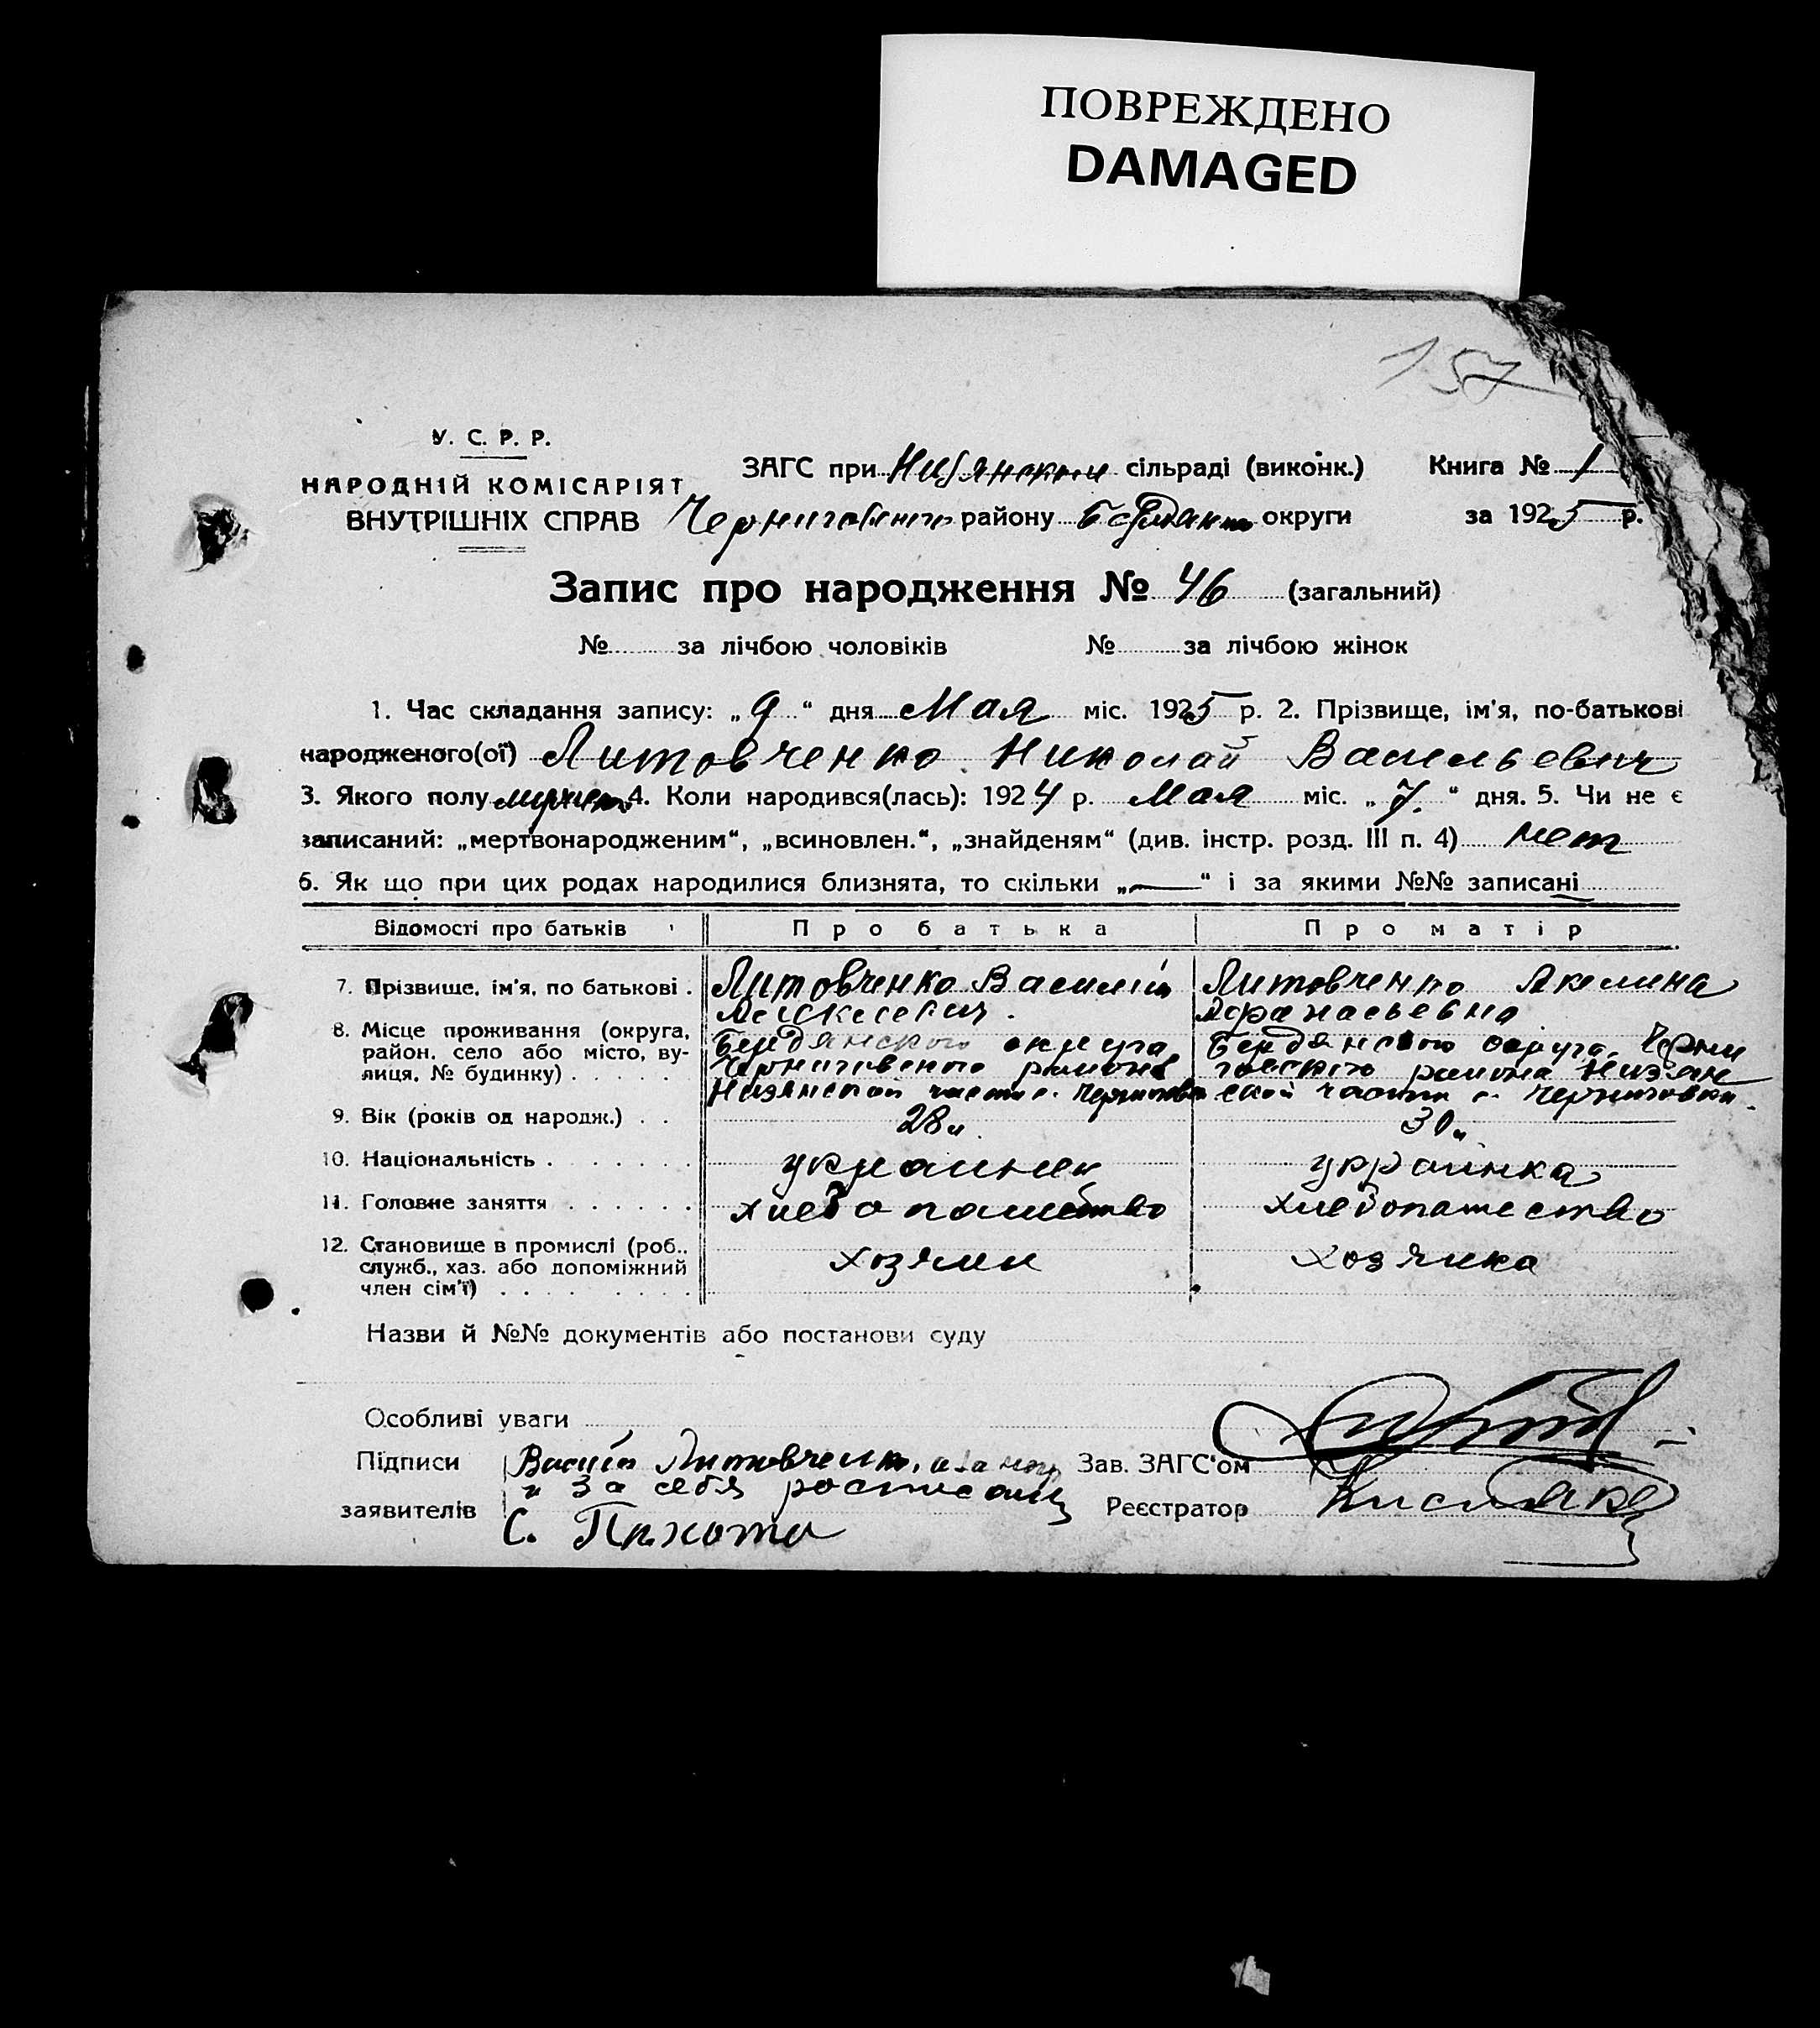 ПОВРЕЖДЕНО
DAMAGED
157
У. С. Р. Р.
НАРОДНІЙ КОМІСАРІЯТ
ВНУТРІШНІХ СПРАВ
ЗАГС при сільраді (виконк.) Книга № 1
району округи за 1925 р.
Запис про народження № 46 (загальний)
№ за лічбою чоловіків № за лічбою жінок
1. Час складання запису: „9“ дня Мая міс. 1925 р. 2. Прізвище, ім'я, по-батькові
народженого(ої) Литовченко Николай Васильевич
3. Якого полу 4. Коли народився(лась): 1924 р. Мая міс. „7.“ дня. 5. Чи не є
записаний: „мертвонародженим“, „всиновлен.“, „знайденям“ (див. інстр. розд. III п. 4) нет
6. Як що при цих родах народилися близнята, то скільки „—“ і за якими №№ записані
Відомості про батьків Про батька Про матір
7. Прізвище, ім'я, по батькові . Литовченко Василий Литовченко Акелина
Афанасьевна
8. Місце проживання (округа, район, село або місто, вулиця, № будинку) . . . . . Бердянского округа Бердянского округа, Черни
Черниговского района говского района Низян
Низянской части с. Черниговка ской части с. Черниговки
9. Вік (років од народж.) . . 28 л. 30 л.
10. Національність . . . . . . . украинец украинка
11. Головне заняття . . . . . . хлебопашество хлебопашество
12. Становище в промислі (роб., служб., хаз. або допоміжний член сім'ї) . . . . . . . . . хозяин хозяйка
Назви й №№ документів або постанови суду
Особливі уваги
Підписи Литовченко, Зав. ЗАГС'ом
и за себя росписался
заявителів Реєстратор
С. Пихота